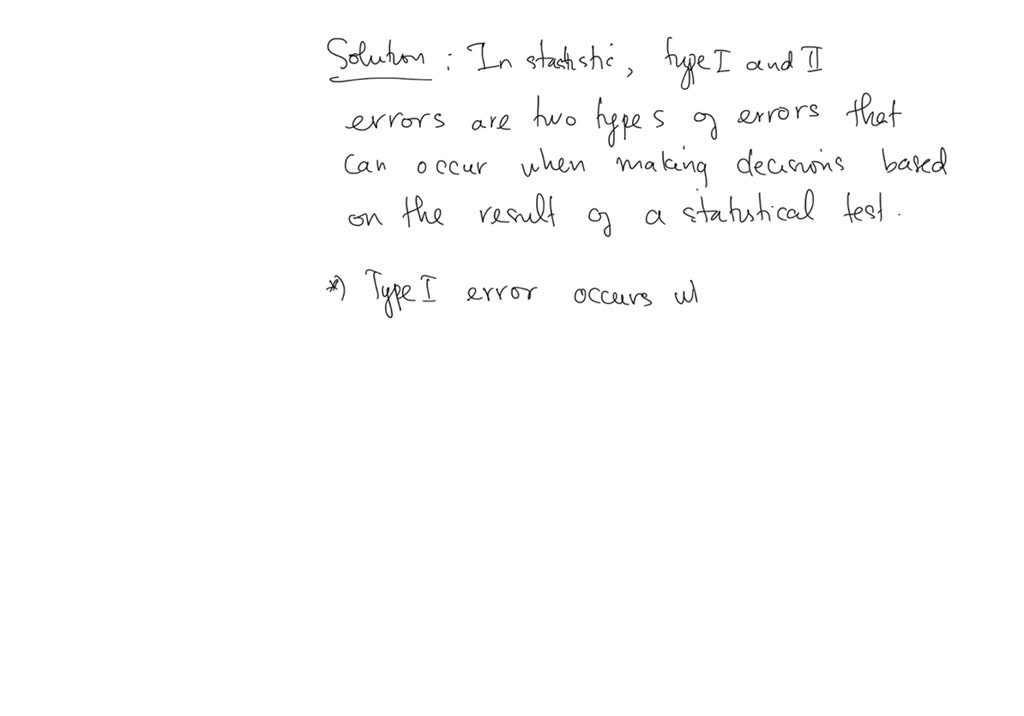 Solution : In statistic, type I and II
errors are two types of errors that
can occur when making decisions based
on the result of a statistical test.
*) Type I error occurs wh